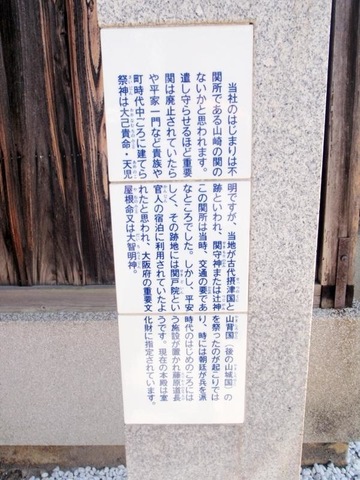 当社のはじまりは不明ですが、当地が古代摂津国と山背国（後の山城国）の
関所である山崎の関の跡といわれ、関守神または辻神を祭ったのが起こりでは
ないかと思われます。この関所は当時、交通の要であり、時には朝廷が兵を派
遣し守らせるほど重要なところでした。しかし、平安時代のはじめのころには
関は廃止されていたらしく、その跡地には関戸院という施設が置かれ藤原道長
や平家一門など貴族や官人の宿泊に利用されていたようです。現在の本殿は室
町時代中ころに建てられたと思われ、大阪府の重要文化財に指定されています。
祭神は大己貴命・天児屋根命又は大智明神。